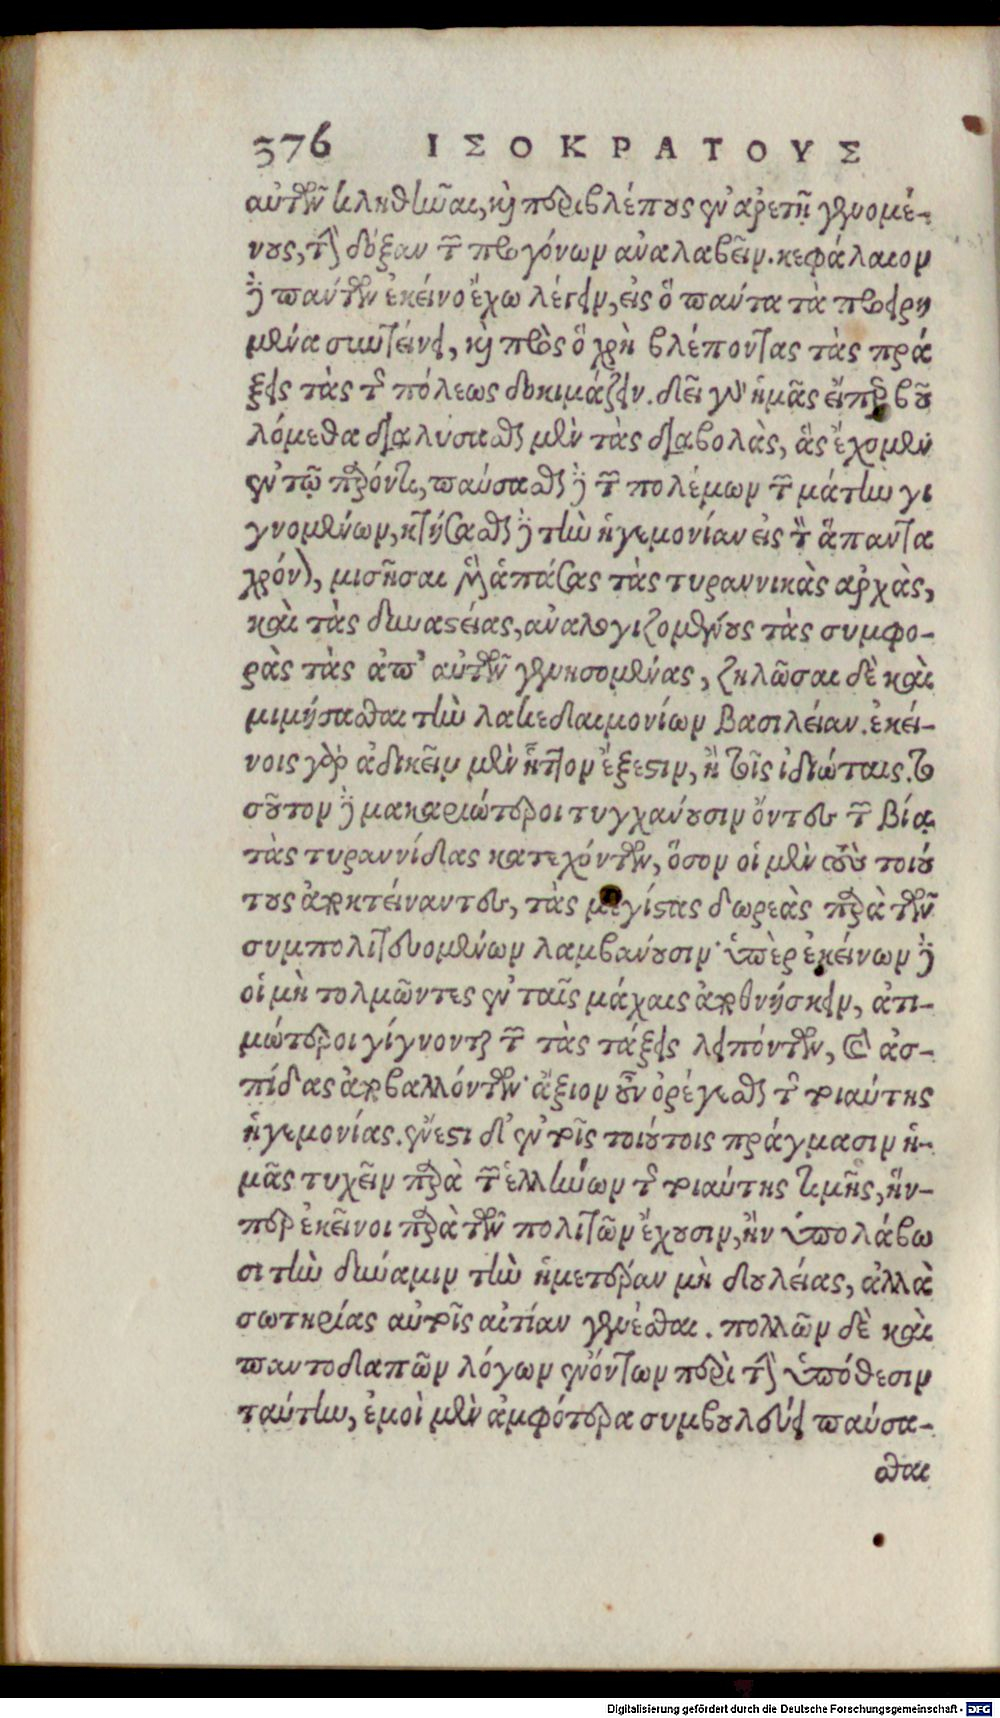 376 ΙΣΟΚΡΑΤΟΥΣ
αὐτῶν κληθῆναι, καὶ περιβλέπους ἐν ἀρετῇ γενομέ-
νους, τὴν δόξαν τῶν προγόνων ἀναλαβεῖν. κεφάλαιον
δὲ πάντων ἐκεῖνο ἔχω λέγειν, εἰς ὃ πάντα τὰ προειρη
μένα συντείνει, καὶ πρὸς ὃ χρὴ βλέποντας τὰς πρά
ξεις τὰς τῆς πόλεως δοκιμάζειν. δεῖ γὰρ ἡμᾶς εἴπερ βου
λόμεθα διαλύσασθαι μὲν τὰς διαβολὰς, ἃς ἔχομεν
ἐν τῷ παρόντι, παύσασθαι δὲ τῶν πολέμων τῶν μάτην γι
γνομένων, κτήσασθαι δὲ τὴν ἡγεμονίαν εἰς τὸν ἅπαντα
χρόνον, μισῆσαι μὲν ἁπάσας τὰς τυραννικὰς ἀρχὰς,
καὶ τὰς δυναστείας, ἀναλογιζομένους τὰς συμφο-
ρὰς τὰς ἀπ' αὐτῶν γενησομένας, ζηλῶσαι δὲ καὶ
μιμήσασθαι τὴν λακεδαιμονίων βασιλείαν. ἐκεί-
νοις γὰρ ἀδικεῖν μὲν ἧττον ἔξεστιν, ἢ τοῖς ἰδιώταις. το
σοῦτον δὲ μακαριώτεροι τυγχάνουσιν ὄντες τῶν βίᾳ
τὰς τυραννίδας κατεχόντων, ὅσον οἱ μὲν τοὺς τοιού
τους ἀποκτείναντες, τὰς μεγίστας δωρεὰς παρὰ τῶν
συμπολιτευομένων λαμβάνουσιν· ὑπὲρ ἐκείνων δὲ
οἱ μὴ τολμῶντες ἐν ταῖς μάχαις ἀποθνήσκειν, ἀτι-
μώτεροι γίγνονται τῶν τὰς τάξεις λειπόντων, καὶ ἀσ-
πίδας ἀποβαλλόντων· ἄξιον οὖν ὀρέγεσθαι τῆς τοιαύτης
ἡγεμονίας. ἔνεστι δ' ἐν τοῖς τοιούτοις πράγμασιν ἡ-
μᾶς τυχεῖν παρὰ τῶν ἑλλήνων τῆς τοιαύτης τιμῆς, ἥν-
περ ἐκεῖνοι παρὰ τῶν πολιτῶν ἔχουσιν, ἢν ὑπολάβω
σι τὴν δύναμιν τὴν ἡμετέραν μὴ δουλείας, ἀλλὰ
σωτηρίας αὐτοῖς αἰτίαν γενέσθαι. πολλῶν δὲ καὶ
παντοδαπῶν λόγων ἐνόντων περὶ τὴν ὑπόθεσιν
ταύτην, ἐμοὶ μὲν ἀμφότερα συμβουλεύει παύσα-
σθαι
Digitalisierung gefördert durch die Deutsche Forschungsgemeinschaft - DFG